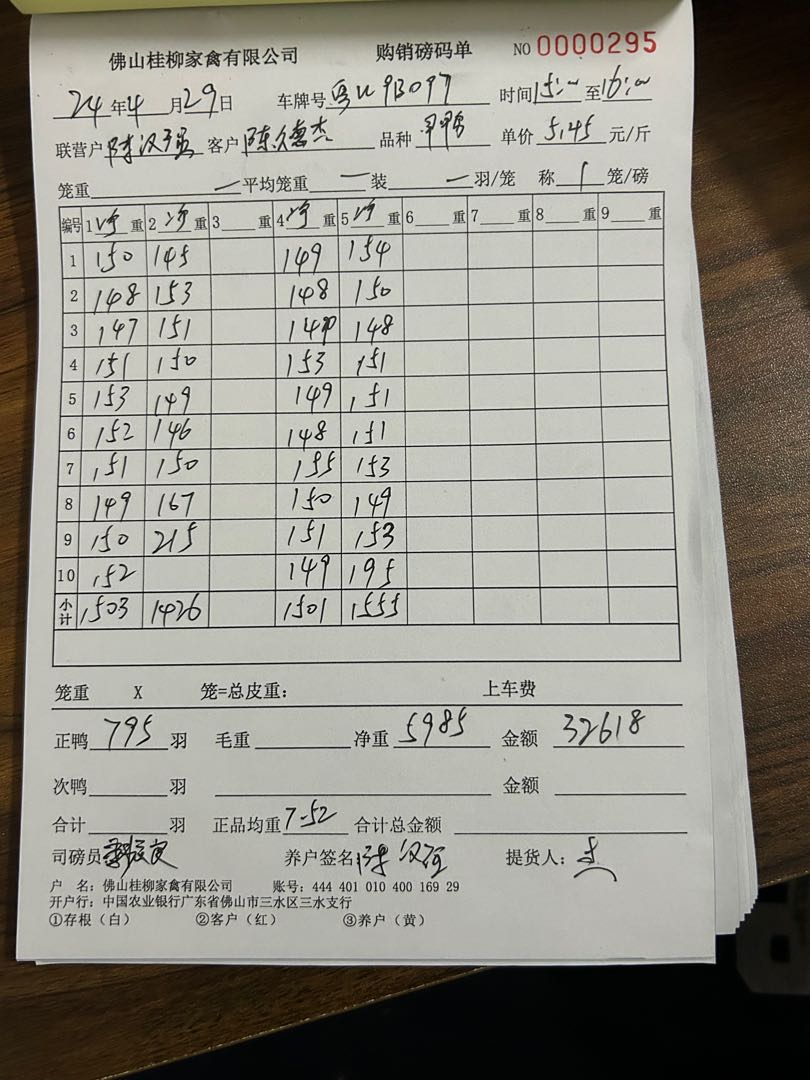 佛山桂柳家禽有限公司 购销磅码单 NO 0000295
24年4月29日 车牌号 粤U9B097 时间15:00至16:00
联营户 陈汉强 客户 陈德杰 品种 单价 5.45 元/斤
笼重 — 平均笼重 — 装 — 羽/笼 称 1 笼/磅
编号 1 净 重 2 净 重 3 重 4 净 重 5 净 重 6 重 7 重 8 重 9 重
1 150 145 149 154
2 148 153 148 150
3 147 151 149 148
4 151 150 153 151
5 153 149 149 151
6 152 146 148 151
7 151 150 155 153
8 149 167 150 149
9 150 215 151 153
10 152 149 195
小计 1503 1426 1501 1555
笼重 X 笼=总皮重: 上车费
正鸭 795 羽 毛重 净重 5985 金额 32618
次鸭 羽 金额
合计 羽 正品均重 7.52 合计总金额
司磅员 养户签名 陈汉强 提货人:
户 名: 佛山桂柳家禽有限公司 账号: 444 401 010 400 169 29
开户行: 中国农业银行广东省佛山市三水区三水支行
①存根(白) ②客户(红) ③养户(黄)